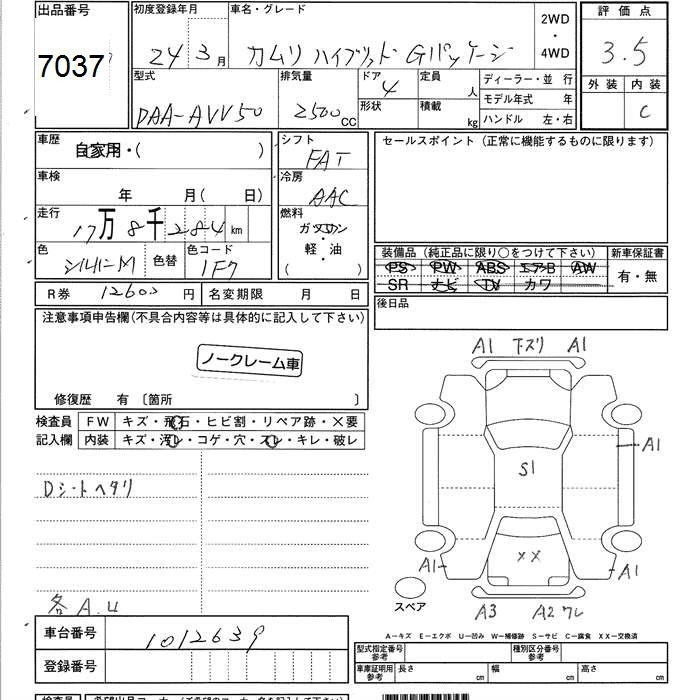 出品番号 初度登録年月 車名・グレード 評価点
7037 24 3月 カムリ ハイブリッド Gパッケージ 2WD・4WD 3.5
型式 排気量 ドア 定員 人 ディーラー・並 行 外装 内装
DAA-AVV50 2500cc 4 形状 積載 kg モデル年式 年 C
ハンドル 左・右
車歴 自家用・( ) シフト FAT セールスポイント(正常に機能するものに限ります)
車検 年 月( 日) 冷房 AAC
走行 17万8千284km 燃料 ガソリン 軽・油 ( )
色 シルバーM 色替 色コード 1F7
装備品(純正品に限り○をつけて下さい) 新車保証書
PS PW ABS エアB AW 有・無
SR ナビ TV カワ
R券 12600円 名変期限 月 日 後日品
注意事項申告欄(不具合内容等は具体的に記入して下さい)
ノークレーム車
修復歴 有 〔箇所 〕
検査員 FW キズ・飛石・ヒビ割・リペア跡・×要
記入欄 内装 キズ・汚レ・コゲ・穴・スレ・キレ・破レ
Dシートヘタリ
各A.U
A1 下ズリ A1
A1
S1
××
A1 A1
スペア A3 A2ワレ
A−キズ E−エクボ U−凹み W−補修跡 S−サビ C−腐食 XX−交換済
車台番号 1012639
登録番号
型式指定番号 参考 種別区分番号 参考
車庫証明用 参考 長さ cm 幅 cm 高さ cm